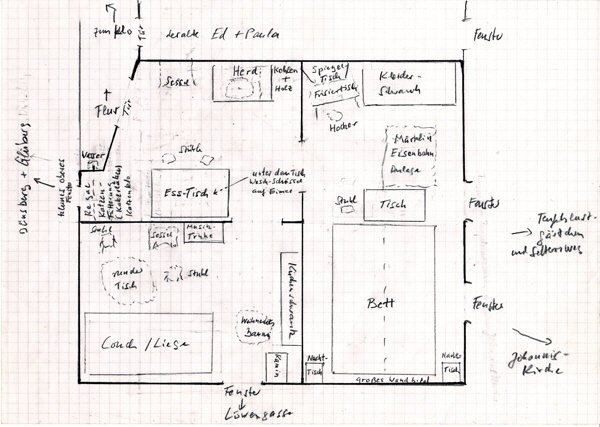 zum Klo
Tür
der alte Ed + Paula
Fenster
Sessel
Herd
Kohlen
+
Holz
Spiegel-
Tisch
Frisiertisch
Hocker
Kleider-
Schrank
Flur
Tür
Märklin
Eisenbahn
Anlage
Dünsberg + Gleiberg
kleines oberes
Fenster
Wasser
Regal
Katzen-
Fütterung
Katzenklo
Stühle
Ess-Tisch
unter dem Tisch
Wasch-Schüssel
auf Eimer
Stuhl
Tisch
Fenster
Stuhl
Sessel
Musik-
Truhe
runder
Tisch
Stuhl
Küchenschrank
Bett
Fenster
und Seltersweg
Johannis-
Kirche
Couch / Liege
Weihnachts
Baum
Kamin
Nacht-
Tisch
Nacht-
Tisch
großes Wandbild
Fenster
Löwengasse